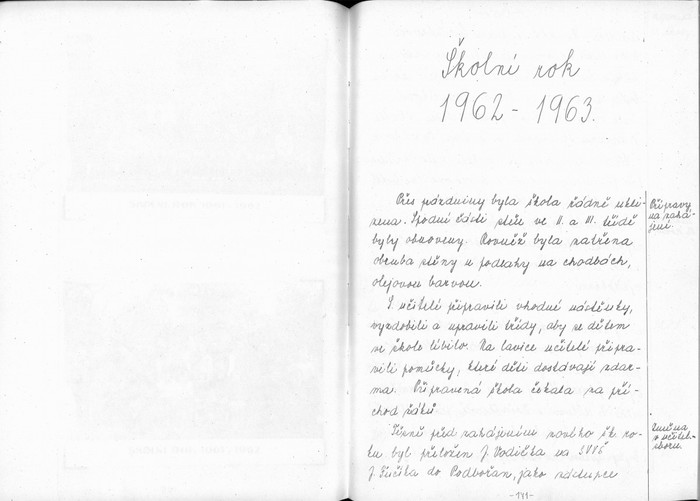 Školní rok
1962 - 1963.
Přes prázdniny byla škola řádně ukli-
zena. Spodní části stěn ve II. a III. třídě
byly obnoveny. Rovněž byla natřena
obruba stěny u podlahy na chodbách,
olejovou barvou.
I učitelé připravili vhodné nástěnky,
vyzdobili a upravili třídy, aby se dětem
ve škole líbilo. Na lavice učitelé připra-
vili pomůcky, které děti dostávají zdar-
ma. Připravená škola čekala na pří-
chod žáků.
Přípravy
na zahá-
jení.
Těsně před zahájením nového šk. ro-
ku byl přeložen J. Vodička na SVVŠ
J. Fučíka do Podbořan, jako zástupce
Změna
v učitel.
sboru.
-141-